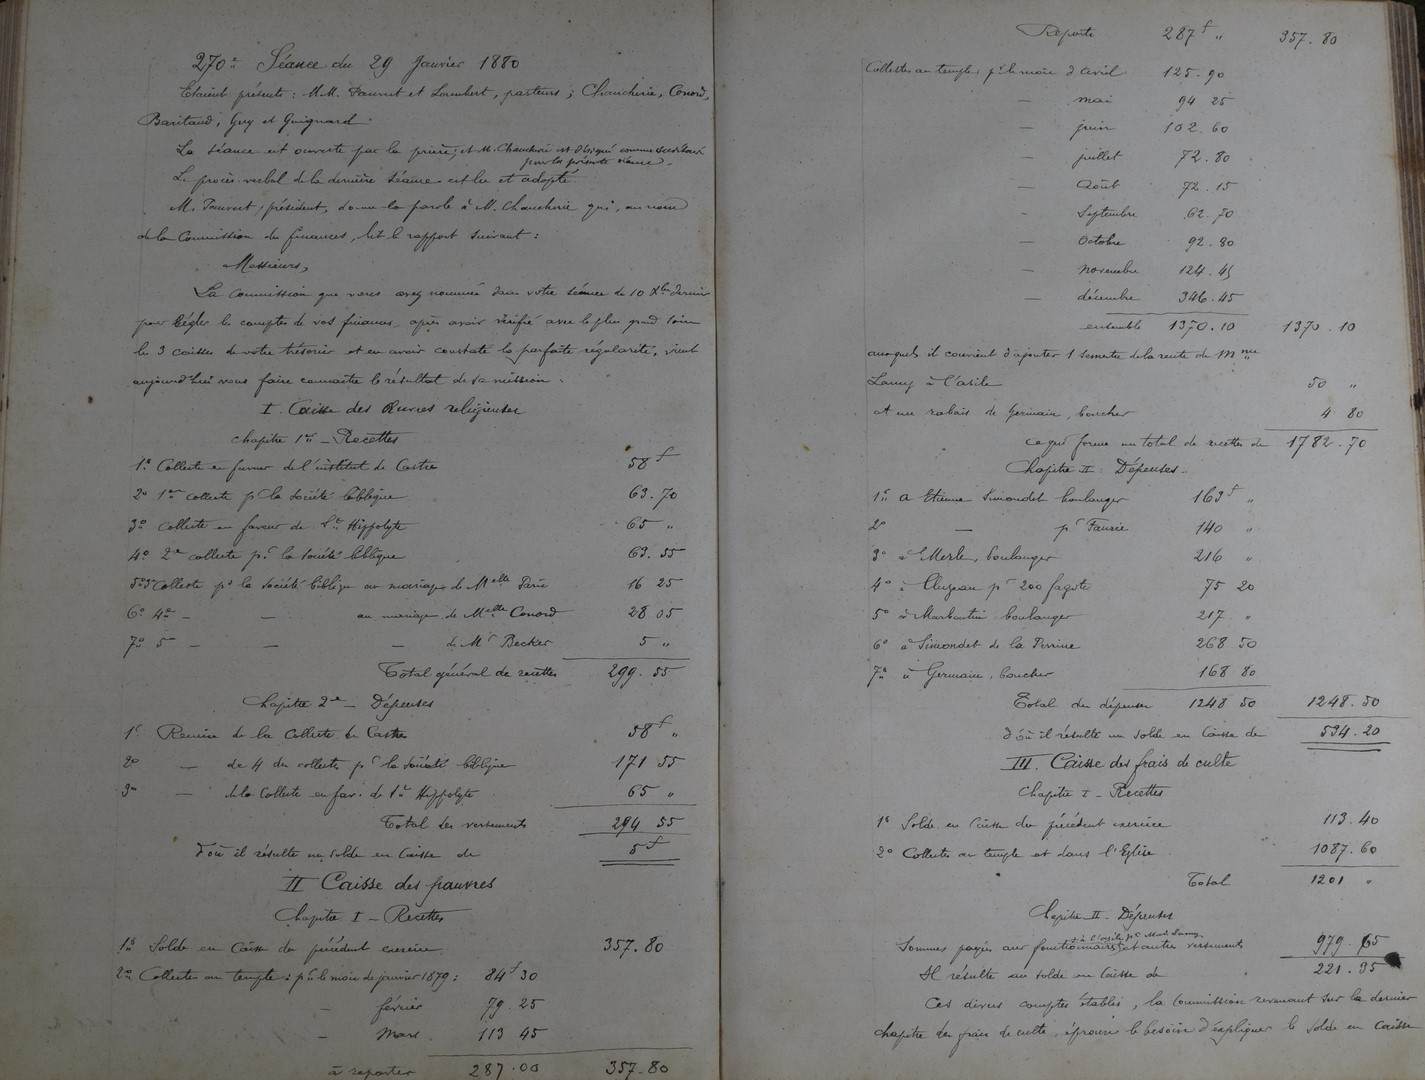 270e Séance du 29 Janvier 1880
Etaient présents : M.M. Fauvert et Lambert, pasteurs ; Chaucherie, Conord,
Baritaud, Guy et Guignard.
La séance est ouverte par la prière ; et M. Chaucherie est désigné comme secrétaire
pour la présente séance.
Le procès-verbal de la dernière séance est lu et adopté
M. Fauvert, président, donne la parole à M. Chaucherie qui, au nom
de la Commission des finances, lit le rapport suivant :
Messieurs,
La Commission que vous avez nommée dans votre séance du 10 Xbre dernier
pour régler les comptes de vos finances, après avoir vérifié avec le plus grand soin
les 3 caisses de votre trésorier et en avoir constaté la parfaite régularité, vient
aujourd'hui vous faire connaître le résultat de sa mission.
I. Caisse des Œuvres religieuses
Chapitre 1er – Recettes
1º Collecte en faveur de l'institut de Castres 58f
2º 1ère collecte pr la Société biblique 63.70
3º Collecte en faveur de St Hippolyte 65 "
4º 2e collecte pr la Société biblique 63.55
5º 3e Collecte pr la Société biblique au mariage de Melle 16 25
6º 4e – – au mariage de Melle Conord 28 05
7º 5e – – – de Mr Becker 5 "
Total général de recettes 299.55
Chapitre 2e – Dépenses
1º Remise de la Collecte de Castres 58f "
2º – de 4 des collectes pr la Société biblique 171 55
3º – de la Collecte en fav. de St Hippolyte 65 "
Total des versements 294 55
d'où il résulte un solde en Caisse de 5f
II Caisse des pauvres
Chapitre I – Recettes
1º Solde en Caisse du précédent exercice 357.80
2º Collectes au temple : pr le mois de janvier 1879 : 84f 30
– février 79 25
– Mars 113 45
à reporter 287.00 357.80
Report 287f " 357.80
Collectes au temple pr le mois d'avril 125.90
– mai 94 25
– juin 102.60
– juillet 72.80
– Août 72.15
– Septembre 62.70
– Octobre 92.80
– novembre 124.45
– décembre 346.45
ensemble 1370.10 1370.10
auxquels il convient d'ajouter 1 semestre de la rente de Mme
Lamy à l'asile 50 "
et un rabais de Germain, boucher 4 80
ce qui forme un total de recettes de 1782.70
Chapitre II : Dépenses.
1º à Etienne Simondet boulanger 163f "
2º – pr Faurie 140 "
3º à Merle, boulanger 216 "
4º à Cluzeau pr 200 fagots 75 20
5º à boulanger 217 "
6º à Simondet de la Perrine 268 50
7º à Germain, boucher 168 80
Total des dépenses 1248 50 1248.50
d'où il résulte un solde en Caisse de 534.20
III. Caisse des frais de culte
Chapitre I – Recettes
1º Solde en Caisse du précédent exercice 113.40
2º Collectes au temple et dans l'Eglise 1087.60
Total 1201 "
Chapitre II. Dépenses
à l'asile pr Mad. Lamy
Sommes payées aux fonctionnaires et autres versements 979.65
Il résulte un solde en Caisse de 221.35
Ces divers comptes établis, la Commission revenant sur le dernier
chapitre des frais de culte, éprouve le besoin d'expliquer le solde en Caisse